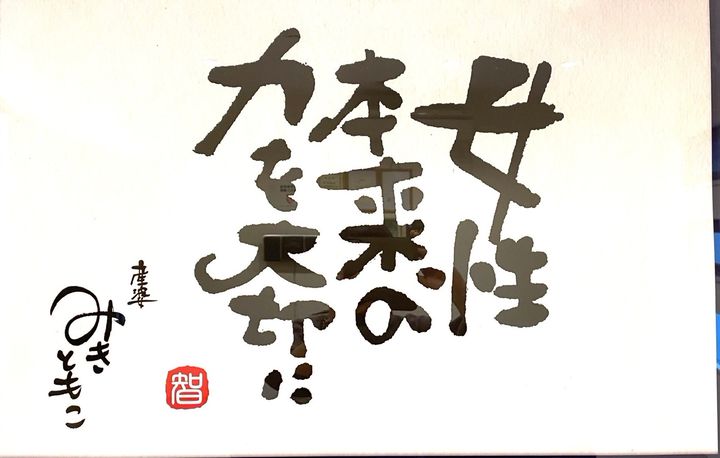 女性
本来の
力を大切に
産婆
みきともこ
智